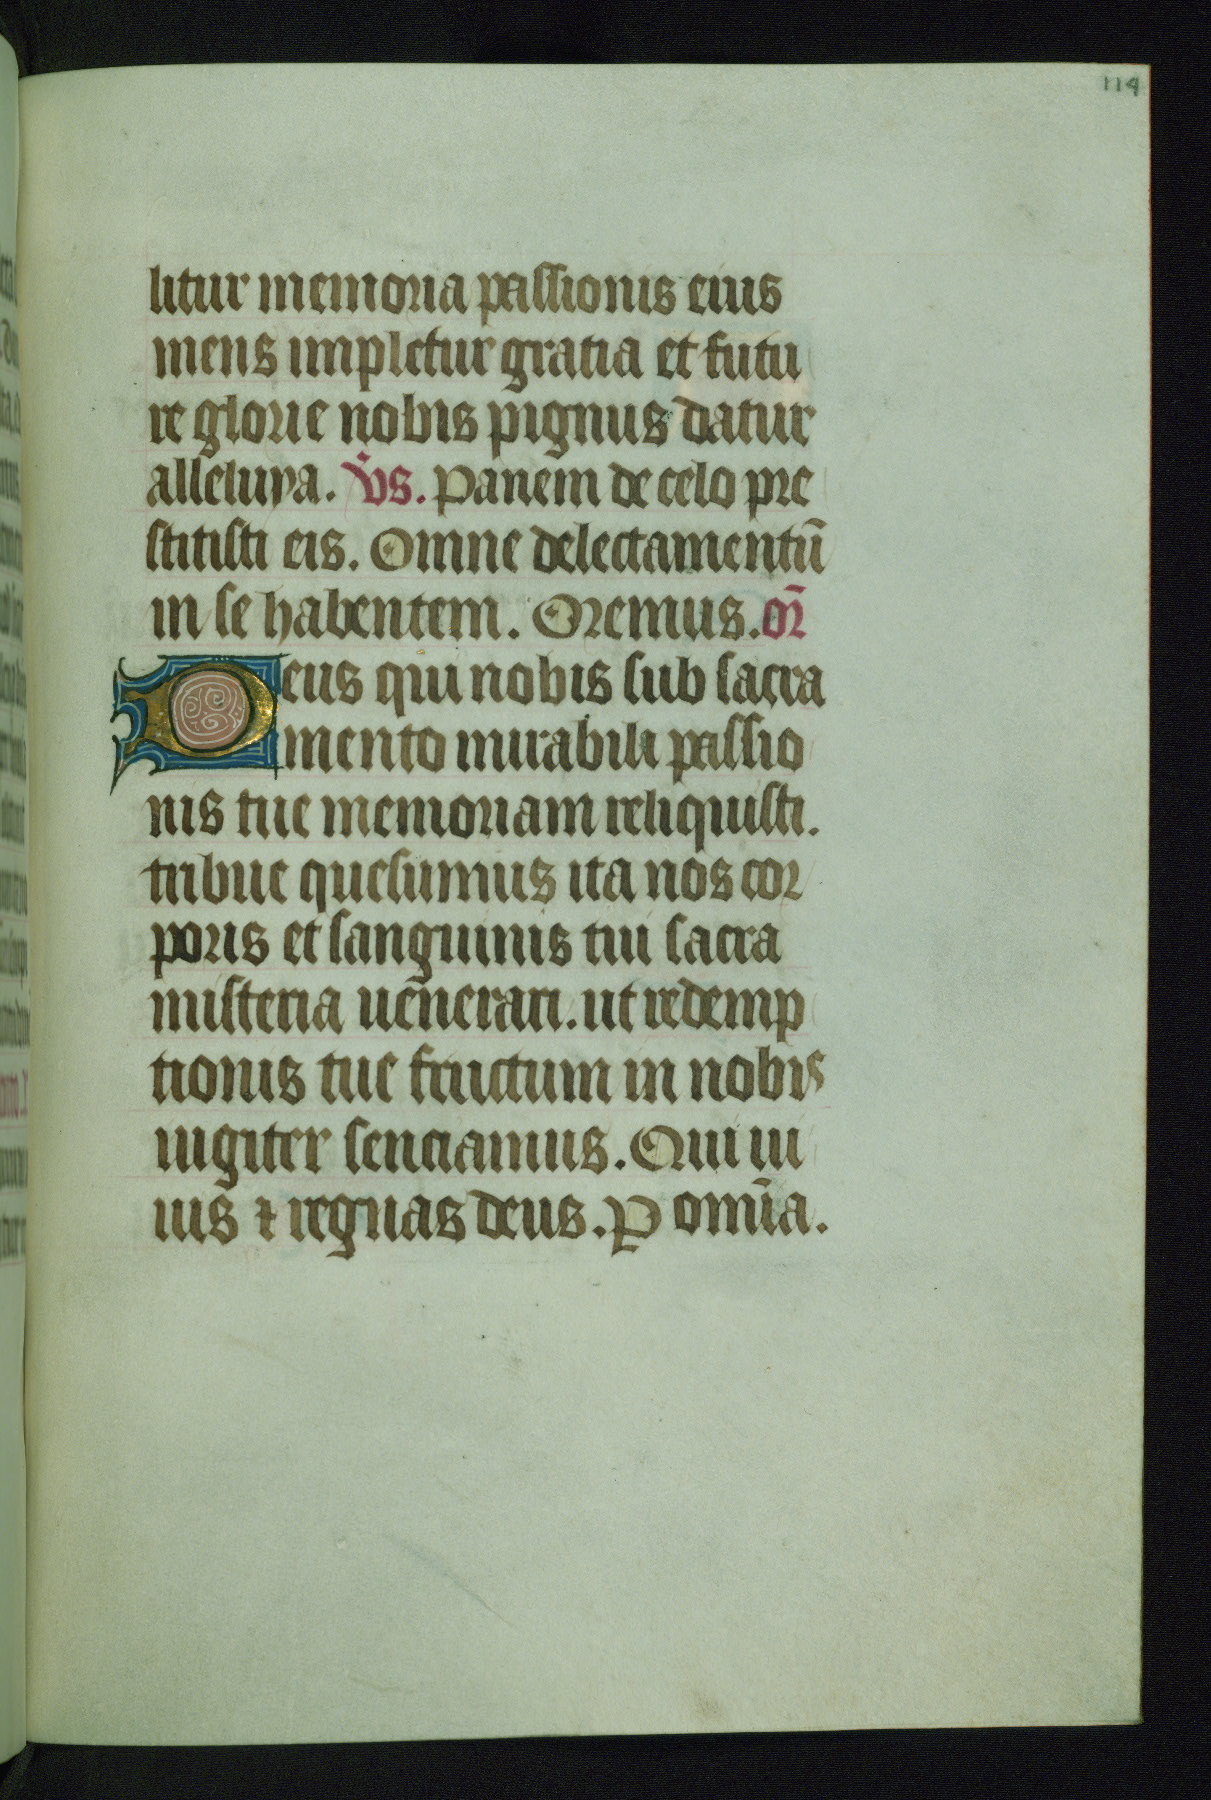 114
litur memoria passionis eius
mens impletur gratia et futu
re glorie nobis pignus datur
alleluya. v̄s. Panem de celo pre
stitisti eis. Omne delectamentū
in se habentem. Oremus. or̄
Deus qui nobis sub sacra
mento mirabili passio
nis tue memoriam reliquisti.
tribue quesumus ita nos cor
poris et sanguinis tui sacra
misteria uenerari. ut redemp
tionis tue fructum in nobis
iugiter senciamus. Qui ui
uis ⁊ regnas deus. P omīa.